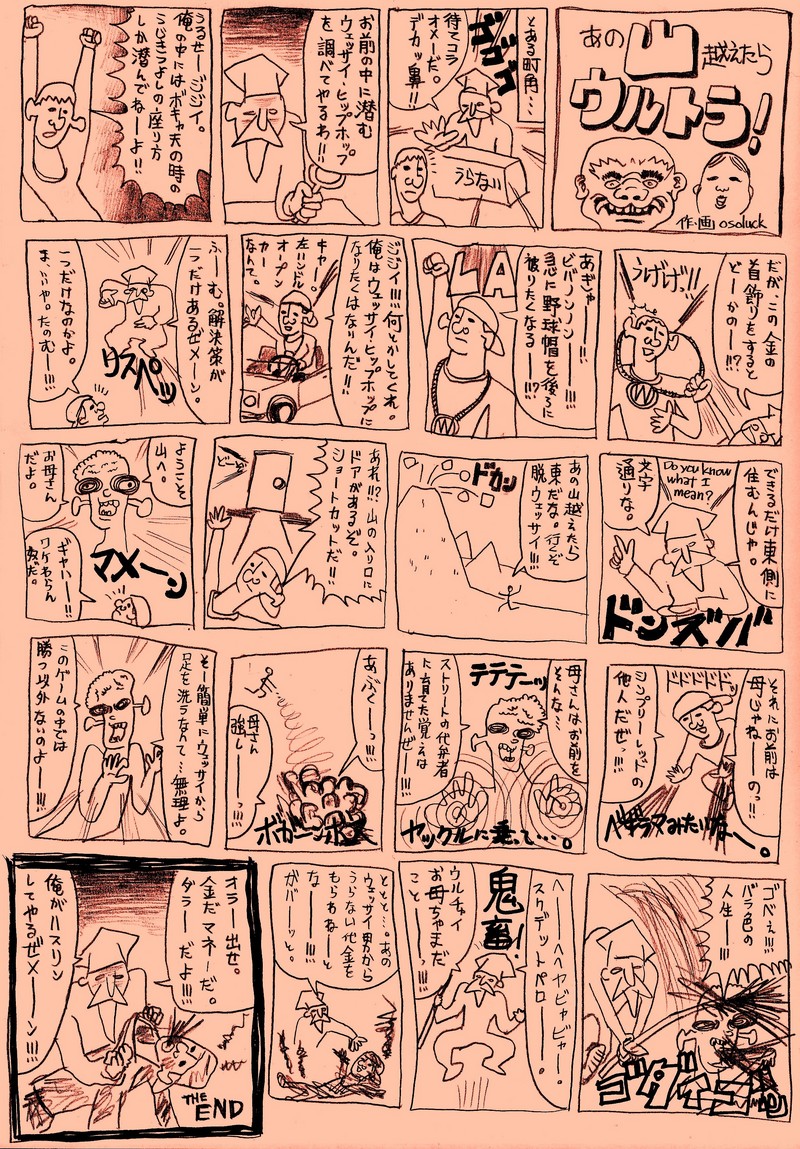 あの
山
越えたら
ウルトラ!
作・画 osoluck
とある町角…
ゴゴゴ
待てコラ
オメーだ。
デカッ鼻!!
うらない
お前の中に潜む
ウェッサイ・ヒップホップ
を調べてやるわ!!
うるせージジイ。
俺の中にはボキャ天の時の
うじきつよしの座り方
しか潜んでねーよ!!
だが、この金の
首飾りをすると
どーかのー!?
うげげっ!!
あぎゃー
ビバノンノンー!!!
急に野球帽を後ろに
被りたくなるー!!?
LA
W
ジジイ!!!何とかしてくれ。
俺はウェッサイ・ヒップホップに
なりたくはないんだ!!
キャー。
左ハンドル
オープン
カー
なんて。
ふーむ。解決策が
一つだけあるぜメーン。
リスペッ
一つだけなのかよ。
ま、いいや。たのむー!!!
できるだけ東側に
住むんじゃ。
Do you know
what I
mean?
文字
通りな。
ドンズバ
あの山越えたら
東だな。行くぞ
脱・ウェッサイ!!!
ドカン
あれ!!?山の入り口に
ドアがあるぞ。
ショートカットだ!!
ようこそ
山へ。
お母さん
だよ。
マメーン
ギャハー!!!
ワケわらん
奴だ。
それにお前は
母じゃねーーのっ!!
ドドドドドッ
シンプリーレッドの
他人だぜっ!!!
ベギラマみたいな〜。
母さんはお前を
そんな…
テテテーッ
ストリートの代弁者
に育てた覚えは
ありませんぜー!!!
ヤックルに乗って…。
あぶくーっ!!!
母さん
強しーーっ!!
ボガーン
そー簡単にウェッサイから
足を洗うなんて…無理よ。
このゲームの中では
勝つ以外ないのよー!!!
ゴベェ!!!
バラ色の
人生ー!!!
ヘーーヘヤビャビャー。
スクデットペロー。
鬼畜!
ウルチャイ
お母ちゃまだ
ことーっ!!!
ととと…。あの
ウェッサイ男から
うらない代金を
もらわね
なー!!ーと
ガバーッと。
オラー出せ。
金だマネーだ。
ダラーだよ!!!
俺がハスリン
してやるぜメーーン!!!
THE
END